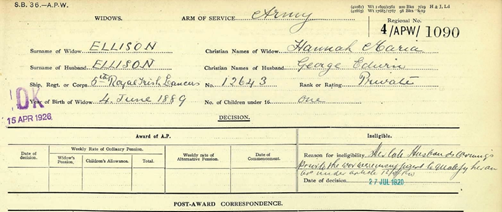 S.B. 36.—A.P.W.
WIDOWS. ARM OF SERVICE Army
Regional No.
4/APW/ 1090
Surname of Widow ELLISON Christian Names of Widow Hannah Maria
Surname of Husband ELLISON Christian Names of Husband George Edwin
Ship, Regt. or Corps 5th Royal Irish Lancers No. 12643 Rank or Rating Private
Year of Birth of Widow 4 June 1889 No. of Children under 16 one
OK
15 APR 1920
DECISION.
Award of A.P. Ineligible.
Date of decision. Weekly Rate of Ordinary Pension. Weekly rate of Alternative Pension. Date of Commencement.
Widow's Pension. Children's Allowance. Total.
Reason for ineligibility Her late Husband's earnings
under article
Date of decision 27 JUL 1920
POST-AWARD CORRESPONDENCE.